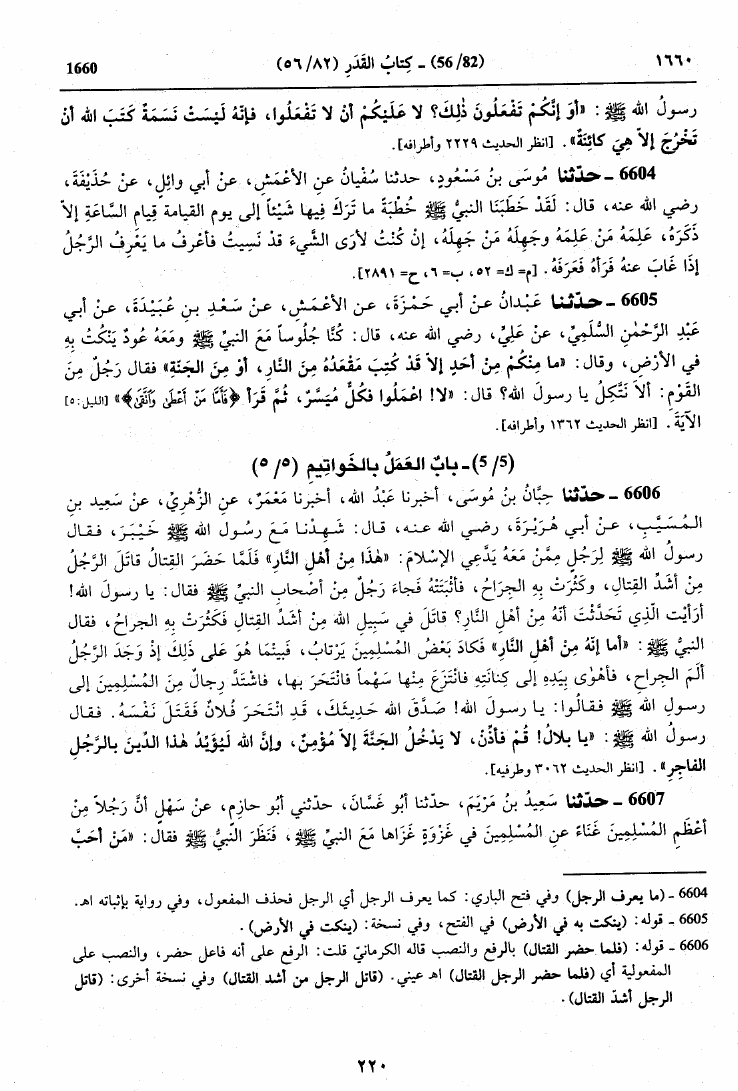 ١٦٦٠ (56/82) ـ كِتابُ القَدَرِ (٥٦/٨٢) 1660
رسولُ الله ﷺ: «أوَ إنَّكُمْ تَفْعَلُونَ ذٰلِكَ؟ لا عَلَيْكُمْ أنْ لا تَفْعَلُوا، فإنَّهُ لَيْسَتْ نَسَمَةٌ كَتَبَ الله أنْ
تَخْرُجَ إلاَّ هِيَ كائِنَةٌ». [انظر الحديث ٢٢٢٩ وأطرافه].
6604 ـ حدّثنا مُوسَى بنُ مَسْعُودٍ، حدثنا سُفْيانُ عنِ الأعْمَشِ، عنْ أبي وائِلٍ، عنْ حُذَيْفَةَ،
رضي الله عنه، قال: لَقَدْ خَطَبَنَا النبيُّ ﷺ خُطْبَةً ما تَرَكَ فِيها شَيْئاً إلى يوم القيامة قِيامِ السَّاعَةِ إلاَّ
ذَكَرَهُ، عَلِمَهُ مَنْ عَلِمَهُ وجَهِلَهُ مَنْ جَهِلَهُ، إنْ كُنْتُ لأرَى الشَّيءَ قدْ نَسِيتُ فأعْرِفُ ما يَعْرِفُ الرَّجُلُ
إذَا غَابَ عنهُ فَرَآهُ فَعَرَفَهُ. [م= ك= ٥٢، ب= ٦، ح= ٢٨٩١].
6605 ـ حدّثنا عَبْدانُ عنْ أبي حَمْزَةَ، عنِ الأعْمَشِ، عنْ سَعْدِ بنِ عُبَيْدَةَ، عنْ أبي
عَبْدِ الرَّحْمٰنِ السُّلَمِيِّ، عنْ عَلِيٍّ، رضي الله عنه، قال: كُنَّا جُلُوساً مَعَ النبيِّ ﷺ ومَعَهُ عُودٌ يَنْكُتُ بِهِ
في الأرْضِ، وقال: «ما مِنْكُمْ مِنْ أحَدٍ إلاَّ قَدْ كُتِبَ مَقْعَدُهُ مِنَ النَّارِ، أوْ مِنَ الجَنَّةِ» فقال رَجُلٌ مِنَ
القَوْمِ: ألاَ نَتَّكِلُ يا رسولَ الله؟ قال: «لا! اعْمَلُوا فكُلٌّ مُيَسَّرٌ، ثُمَّ قَرَأ ﴿فَأَمَّا مَنْ أَعْطَى وَاتَّقَى﴾» [الليل: ٥]
الآيَةَ. [انظر الحديث ١٣٦٢ وأطرافه].
(5/5) ـ بابُ العَمَلُ بالخَواتِيمِ (٥/٥)
6606 ـ حدّثنا حِبَّانُ بنُ مُوسَى، أخبرنا عَبْدُ الله، أخبرنا مَعْمَرٌ، عنِ الزُّهْرِيِّ، عنْ سَعِيد بنِ
المُسَيَّبِ، عنْ أبي هُرَيْرَةَ، رضي الله عنه، قال: شَهِدْنا مَعَ رسُولِ الله ﷺ خَيْبَرَ، فقال
رسولُ الله ﷺ لِرَجُلٍ مِمَّنْ مَعَهُ يَدَّعِي الإسْلامَ: «هٰذا مِنْ أهْلِ النَّارِ» فَلَمَّا حَضَرَ القِتالُ قاتَلَ الرَّجُلُ
مِنْ أشَدِّ القِتالِ، وكَثُرَتْ بِهِ الجِرَاحُ، فأثْبَتَتْهُ فَجاءَ رَجُلٌ مِنْ أصْحابِ النبيِّ ﷺ فقال: يا رسولَ الله!
أرَأيْتَ الَّذِي تَحَدَّثْتَ أنَّهُ مِنْ أهْلِ النَّارِ؟ قاتَلَ في سَبِيلِ الله مِنْ أشَدِّ القِتالِ فَكَثُرَتْ بِهِ الجراحُ، فقال
النبيُّ ﷺ: «أما إنَّهُ مِنْ أهْلِ النَّارِ» فَكادَ بَعْضُ المُسْلِمِينَ يَرْتابُ، فَبَيْنَما هُوَ عَلى ذٰلِكَ إذْ وَجَدَ الرَّجُلُ
ألَمَ الجِراحِ، فأهْوٰى بِيَدِهِ إلى كِنانَتِهِ فانْتَزَعَ مِنْها سَهْماً فانْتَحَرَ بها، فاشْتَدَّ رِجالٌ مِنَ المُسْلِمِينَ إلى
رسولِ الله ﷺ فقالُوا: يا رسولَ الله! صَدَّقَ الله حَدِيثَكَ، قَدِ انْتَحَرَ فُلانٌ فَقَتَلَ نَفْسَهُ. فقال
رسولُ الله ﷺ: «يا بلالُ! قُمْ فأذِّنْ، لا يَدْخُلُ الجَنَّةَ إلاَّ مُؤْمِنٌ، وإنَّ الله لَيُؤَيِّدُ هٰذا الدِّينَ بالرَّجُلِ
الفاجِرِ». [انظر الحديث ٣٠٦٢ وطرفيه].
6607 ـ حدّثنا سَعِيدُ بنُ مَرْيَمَ، حدّثنا أبُو غَسَّانَ، حدّثني أبُو حازِمٍ، عنْ سَهْلٍ أنَّ رَجُلاً مِنْ
أعْظَمِ المُسْلِمِينَ غَنَاءً عنِ المُسْلِمِينَ في غَزْوَةٍ غَزَاها مَعَ النبيِّ ﷺ، فَنَظَرَ النَّبِيُّ ﷺ فقال: «مَنْ أحَبَّ
6604 ـ (ما يعرف الرجل) وفي فتح الباري: كما يعرف الرجل أي الرجل فحذف المفعول، وفي رواية بإثباته اهـ.
6605 ـ قوله: (ينكت به في الأرض) في الفتح، وفي نسخة: (ينكت في الأرض).
6606 ـ قوله: (فلما حضر القتال) بالرفع والنصب قاله الكرمانيّ قلت: الرفع على أنه فاعل حضر، والنصب على
المفعولية أي (فلما حضر الرجل القتال) اهـ عيني. (قاتل الرجل من أشد القتال) وفي نسخة أخرى: (قاتل
الرجل أشدّ القتال).
٢٢٠